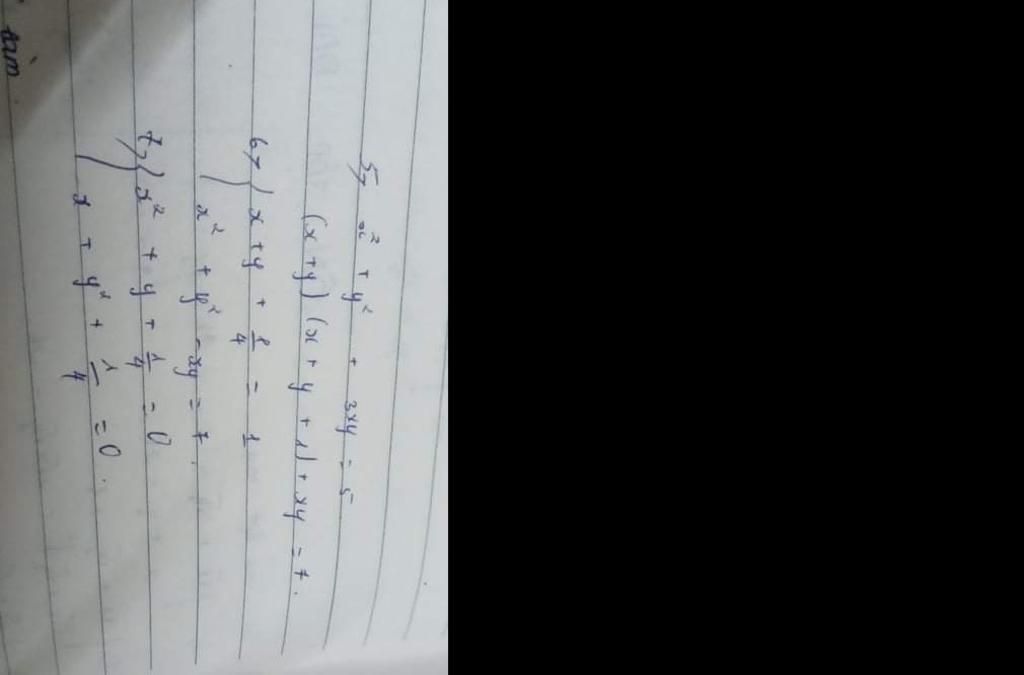 5, x² + y² + 3xy = 5
(x + y) (x + y + 1) + xy = 7.
6, { x + y + 1/4 = 1
x² + y² - xy = 7.
7, { x² + y + 1/4 = 0
x + y² + 1/4 = 0.